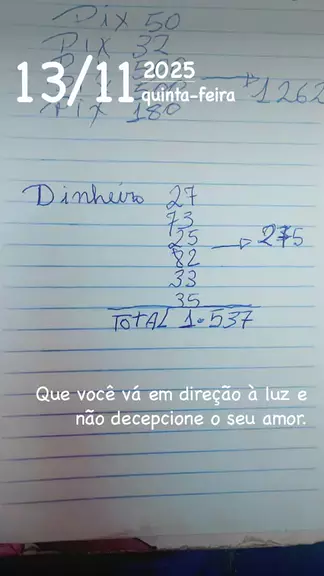 Pix 50
Pix 32
13/11 2025
quinta-feira
→ 1262
Pix 180
Dinheiro 27
73
25 → 275
82
33
35
TOTAL 1.537
Que você vá em direção à luz e
não decepcione o seu amor.